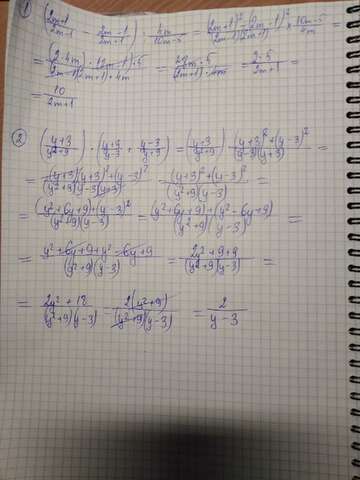 1
(2m+1/2m-1 - 2m-1/2m+1) : 4m/10m-5 = (2m+1)²-(2m-1)²/(2m-1)(2m+1) × 10m-5/4m =
= (2·4m)·(2m-1)·5/(2m-1)(2m+1)·4m = =
= 10/2m+1
2
(y+3/y²+9)·(y+3/y-3 + y-3/y+3) = (y+3/y²+9)·(y+3)²+(y-3)²/(y-3)(y+3) =
= =
= (y²+6y+9)+(y-3)²/(y²+9)(y-3) = (y²+6y+9)+(y²-6y+9)/(y²+9)(y-3) =
= y²+6y+9+y²-6y+9/(y²+9)(y-3) = 2y²+9+9/(y²+9)(y-3) =
= 2y²+18/(y²+9)(y-3) = 2(y²+9)/(y²+9)(y-3) = 2/y-3